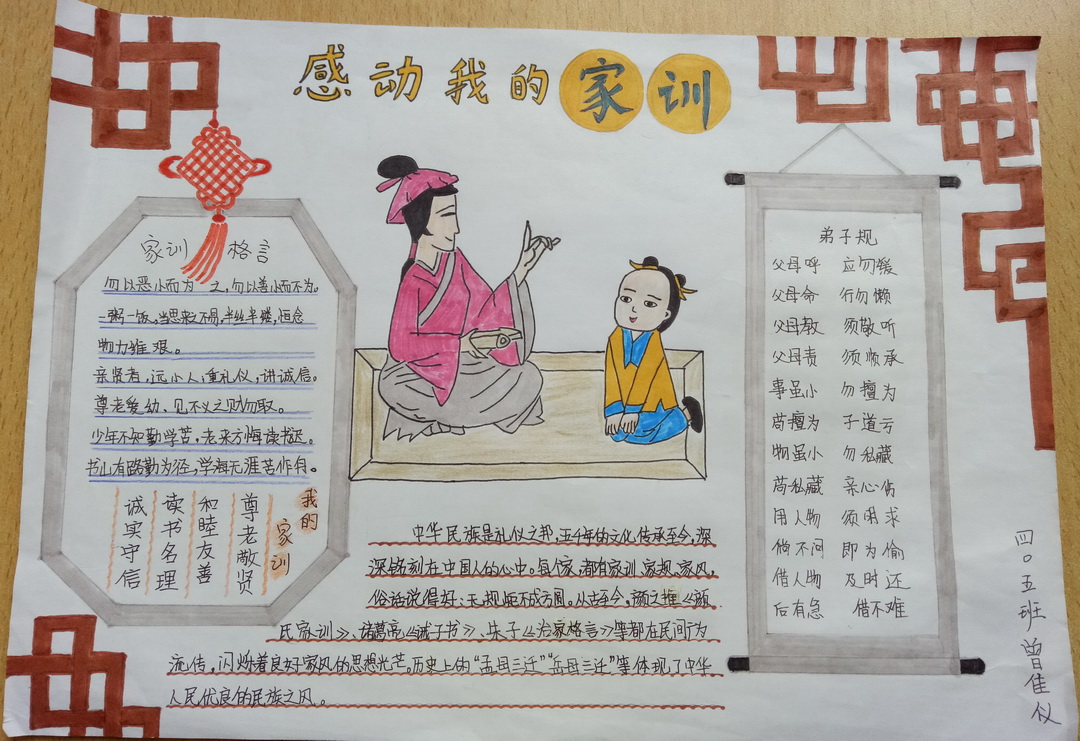 感动我的家训
家训格言
勿以恶小而为之,勿以善小而不为。
一粥一饭,当思来不易,半丝半缕,恒念
物力维艰。
亲贤者,远小人,重礼仪,讲诚信。
尊老爱幼、见不义之财勿取。
少年不知勤学苦,老来方悔读书迟。
书山有路勤为径,学海无涯苦作舟。
我的家训
尊老敬贤
和睦友善
读书名理
诚实守信
弟子规
父母呼 应勿缓
父母命 行勿懒
父母教 须敬听
父母责 须顺承
事虽小 勿擅为
苟擅为 子道亏
物虽小 勿私藏
苟私藏 亲心伤
用人物 须明求
倘不问 即为偷
借人物 及时还
后有急 借不难
中华民族是礼仪之邦,五千年的文化传承至今,深
深铭刻在中国人的心中。每个家都有家训、家规、家风。
俗话说得好:无规矩不成方圆。从古至今,颜之推《颜
氏家训》、诸葛亮《诫子书》、朱子《治家格言》等都在民间广为
流传,闪烁着良好家风的思想光芒。历史上的“孟母三迁”“岳母三迁”等体现了中华
人民优良的民族之风。
四〇五班 曾佳仪